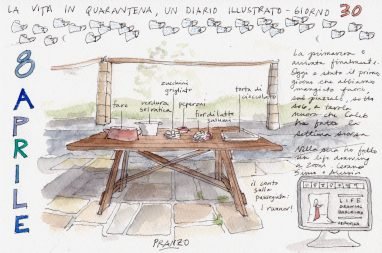 LA VITA IN QUARANTENA, UN DIARIO ILLUSTRATO - GIORNO 30
8 APRILE
La primavera è
arrivata finalmente.
Oggi è stato il primo
giorno che abbiamo
mangiato fuori,
sul piazzale, sotto
la tavola
nuova che Caleb
ha fatto la
settimana scorsa
Nella sera ho fatto
un life drawing
a Zoom. Eravamo
fave
verdura
selvatica
zucchini
grigliati
peperoni
fior di latte
salumi
torta di
cioccolato
il canto
sulla
passeggiata:
i rumori!
PRANZO
LIFE
DRAWING